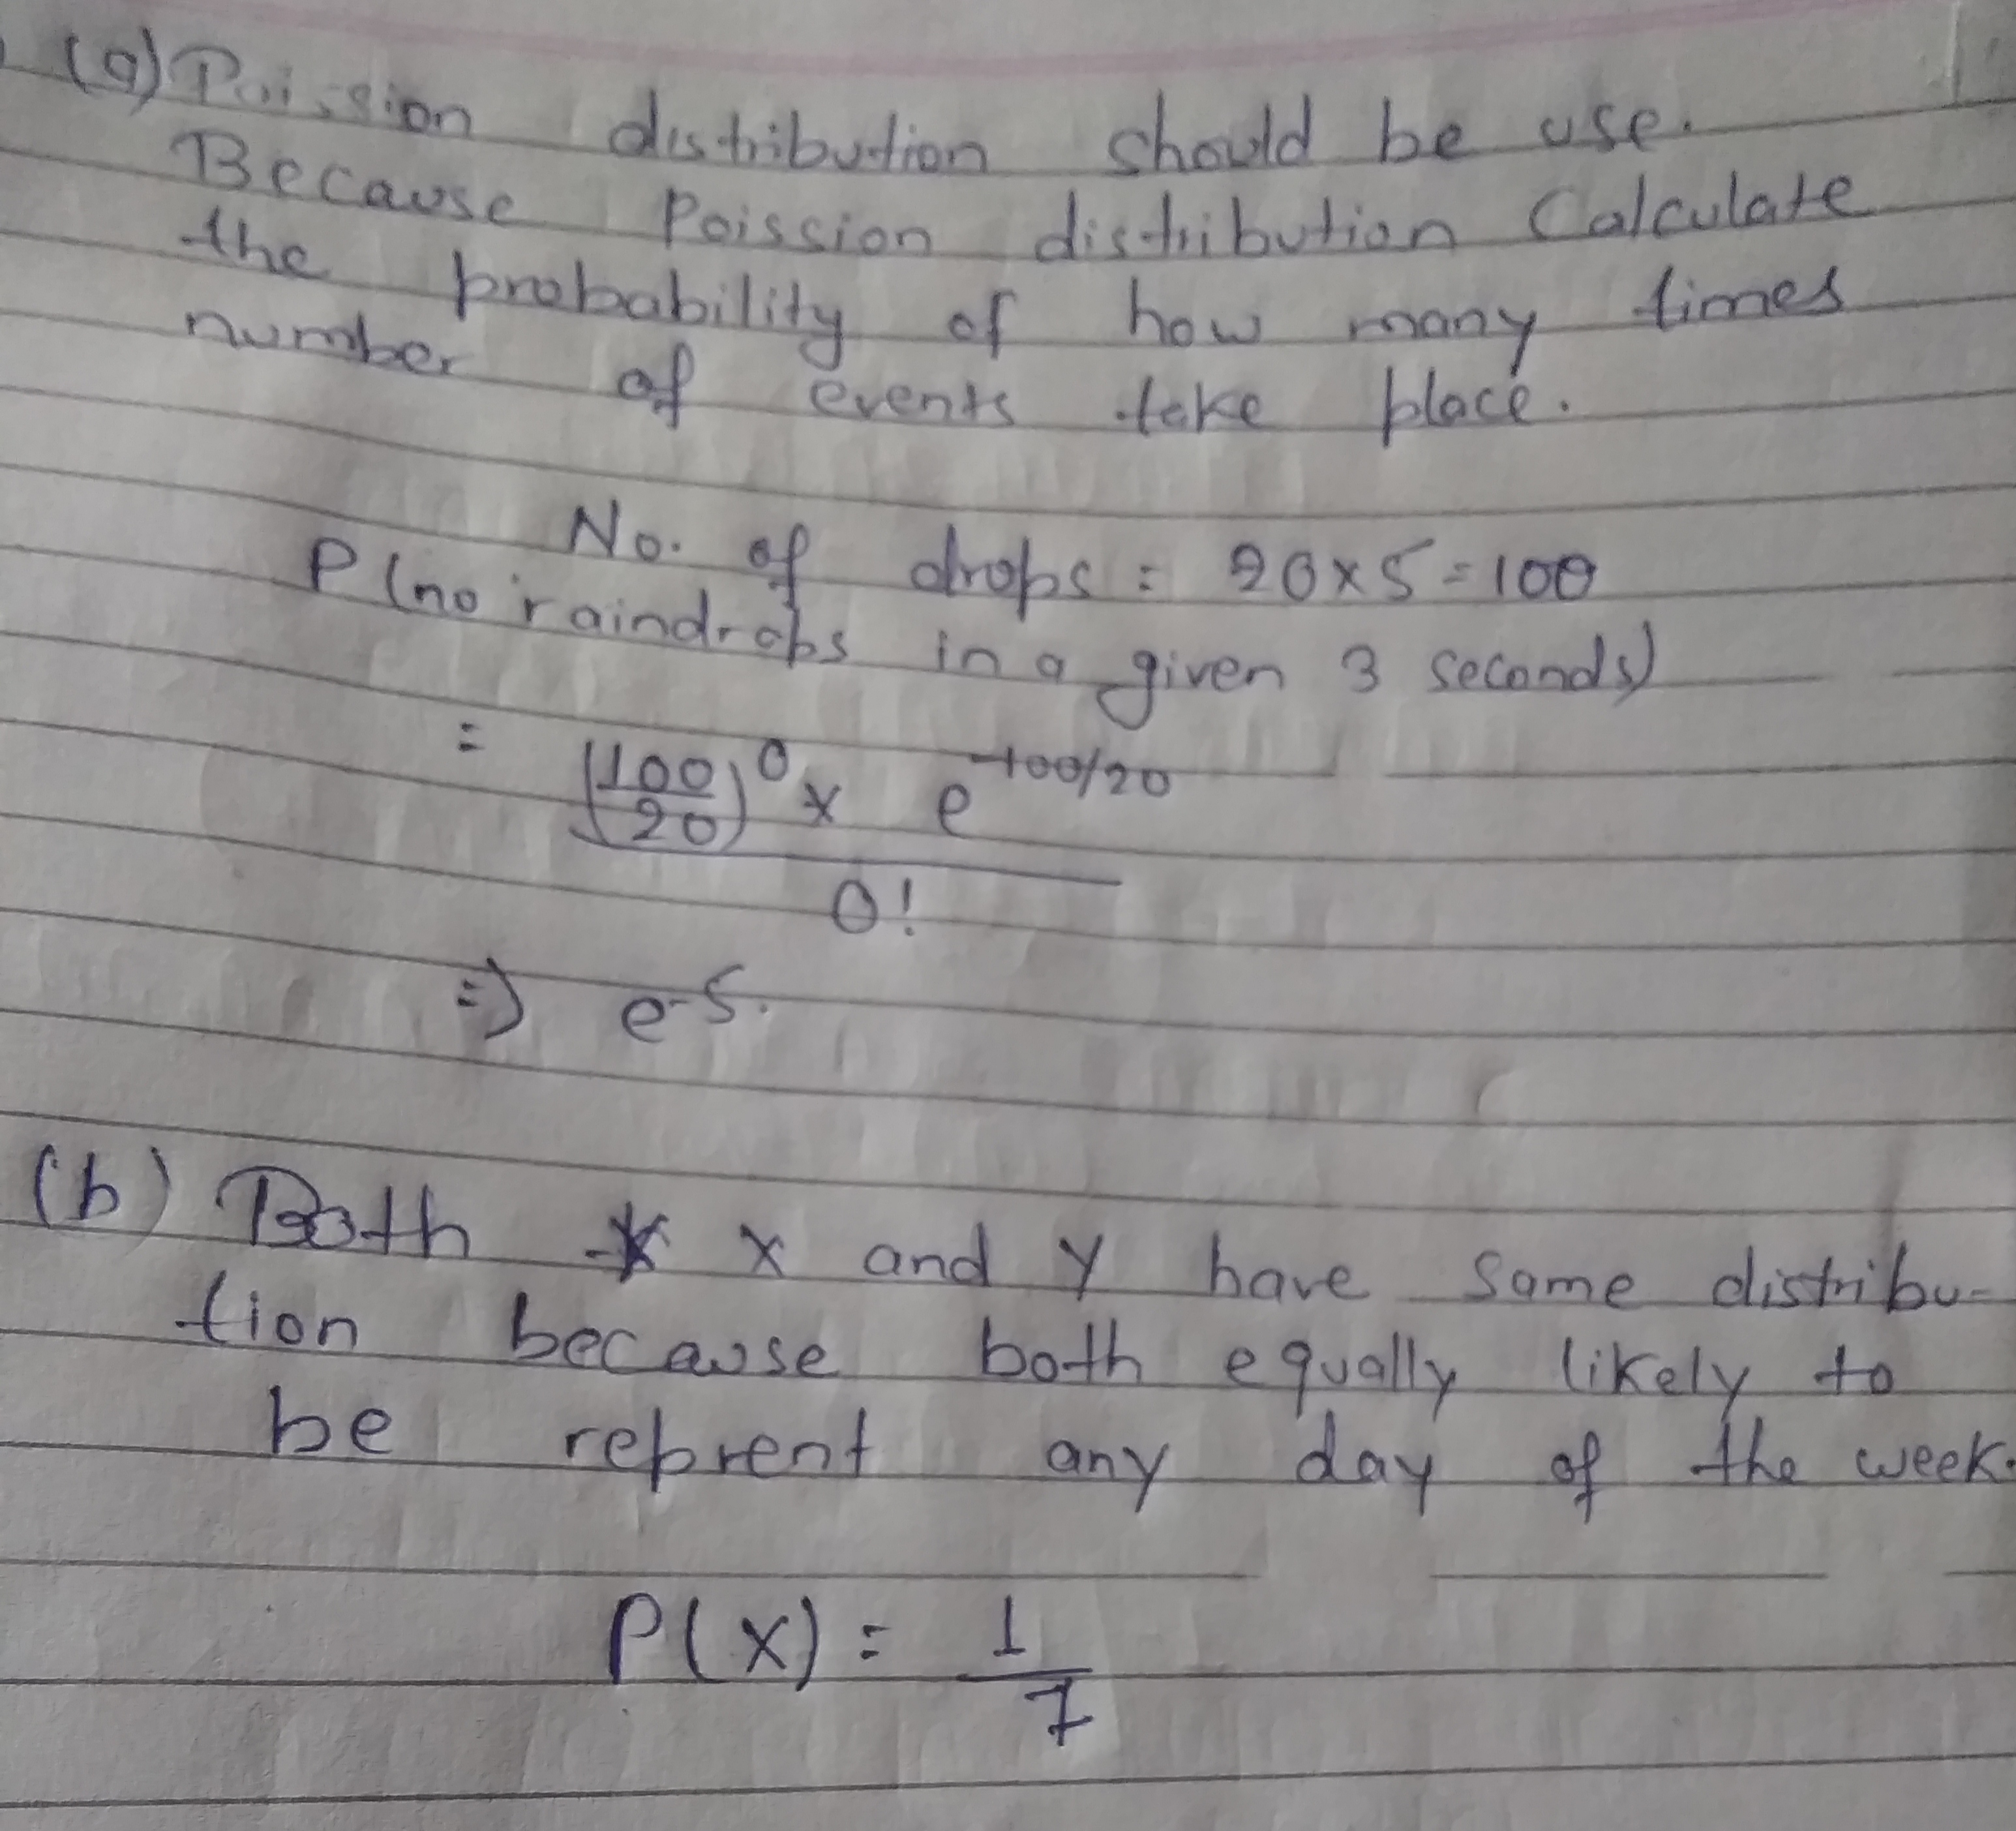 (a) Poission distribution should be use.
Because Poission distribution Calculate
the probability of how many times
number of events take place.
No. of drops = 20x5 = 100
P(no raindrops in a given 3 seconds)
= (100/20)^0 x e^-100/20
0!
=) e-5.
(b) Both x and y have same distribu-
tion because both equally likely to
be reprent any day of the week.
P(x) = 1
7